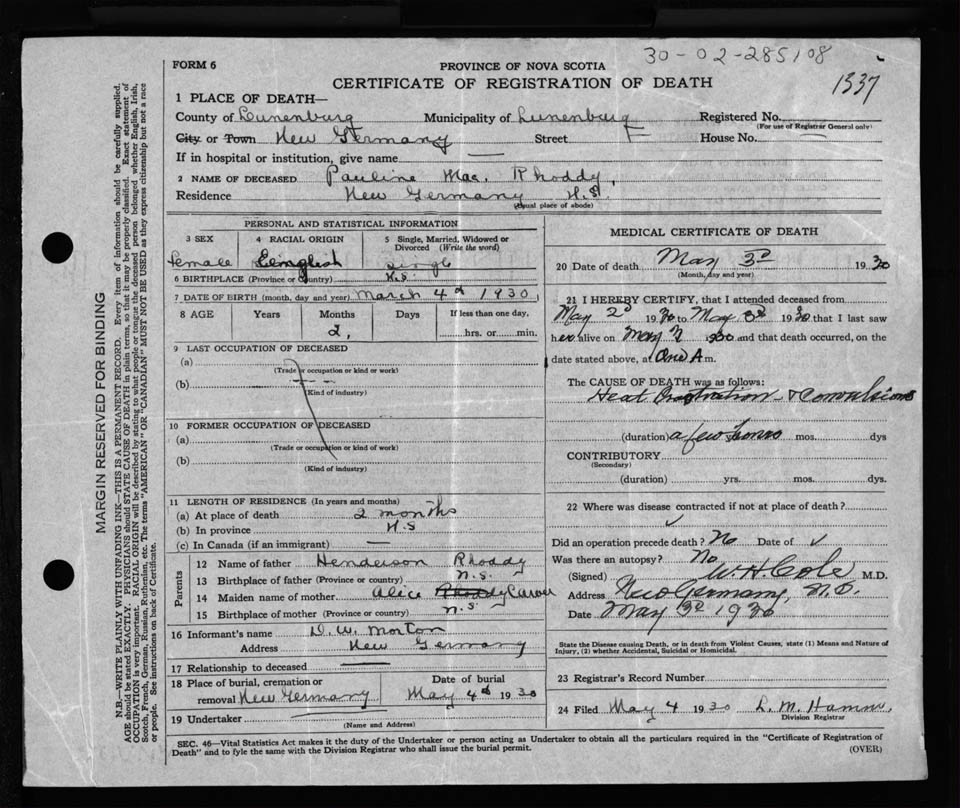 30-02-285108
1337
FORM 6
PROVINCE OF NOVA SCOTIA
CERTIFICATE OF REGISTRATION OF DEATH
1 PLACE OF DEATH—
County of Lunenburg Municipality of Lunenburg Registered No.
(For use of Registrar General only)
City or Town New Germany Street — House No. —
If in hospital or institution, give name —
2 NAME OF DECEASED Pauline Mae. Rhoddy,
Residence New Germany N.S.
(Usual place of abode)
PERSONAL AND STATISTICAL INFORMATION
3 SEX 4 RACIAL ORIGIN 5 Single, Married, Widowed or Divorced (Write the word)
Female English single
6 BIRTHPLACE (Province or Country) N.S.
7 DATE OF BIRTH (month, day and year) March 4th 1930
8 AGE Years Months Days If less than one day,
2, hrs. or min.
9 LAST OCCUPATION OF DECEASED
(a)
(Trade or occupation or kind or work)
(b)
(Kind of industry)
10 FORMER OCCUPATION OF DECEASED
(a)
(Trade or occupation or kind of work)
(b)
(Kind of industry)
11 LENGTH OF RESIDENCE (In years and months)
(a) At place of death 2 months
(b) In province N.S
(c) In Canada (if an immigrant) —
Parents
12 Name of father Henderson Rhoddy
13 Birthplace of father (Province or country) N.S.
14 Maiden name of mother Alice Rhoddy
15 Birthplace of mother (Province or country) N.S.
16 Informant's name D. W. Morton
Address New Germany
17 Relationship to deceased —
18 Place of burial, cremation or removal New Germany Date of burial May 4th 1930
19 Undertaker
(Name and Address)
MEDICAL CERTIFICATE OF DEATH
20 Date of death May 3rd 1930
(Month, day and year)
21 I HEREBY CERTIFY, that I attended deceased from
May 2d 1930 to May 3rd 1930 that I last saw
her alive on May 2 1930 and that death occurred, on the
date stated above, at One A m.
The CAUSE OF DEATH was as follows:
Heat Prostration & Convulsions
(duration) a few mos. dys
CONTRIBUTORY
(Secondary)
(duration) yrs. mos. dys.
22 Where was disease contracted if not at place of death?
✓
Did an operation precede death? No Date of ✓
Was there an autopsy? No
(Signed) W.H. Cole M.D.
Address New Germany, N.S.
Date May 3rd 1930
State the Disease causing Death, or in death from Violent Causes, state (1) Means and Nature of
Injury, (2) whether Accidental, Suicidal or Homicidal.
23 Registrar's Record Number
24 Filed May 4 1930 L. M. Hamm
Division Registrar
SEC. 46—Vital Statistics Act makes it the duty of the Undertaker or person acting as Undertaker to obtain all the particulars required in the "Certificate of Registration of
Death" and to fyle the same with the Division Registrar who shall issue the burial permit.
(OVER)
MARGIN RESERVED FOR BINDING
N.B.—WRITE PLAINLY WITH UNFADING INK—THIS IS A PERMANENT RECORD. Every item of information should be carefully supplied.
AGE should be stated EXACTLY. PHYSICIANS should STATE CAUSE OF DEATH in plain terms, so that it may be properly classified. Exact statement of
OCCUPATION is very important. RACIAL ORIGIN will be described by stating to what people or tongue the deceased person belonged whether English, Irish,
Scotch, French, German, Russian, Ruthenian, etc. The terms "AMERICAN" OR "CANADIAN" MUST NOT BE USED as they express citizenship but not a race
or people. See instructions on back of Certificate.